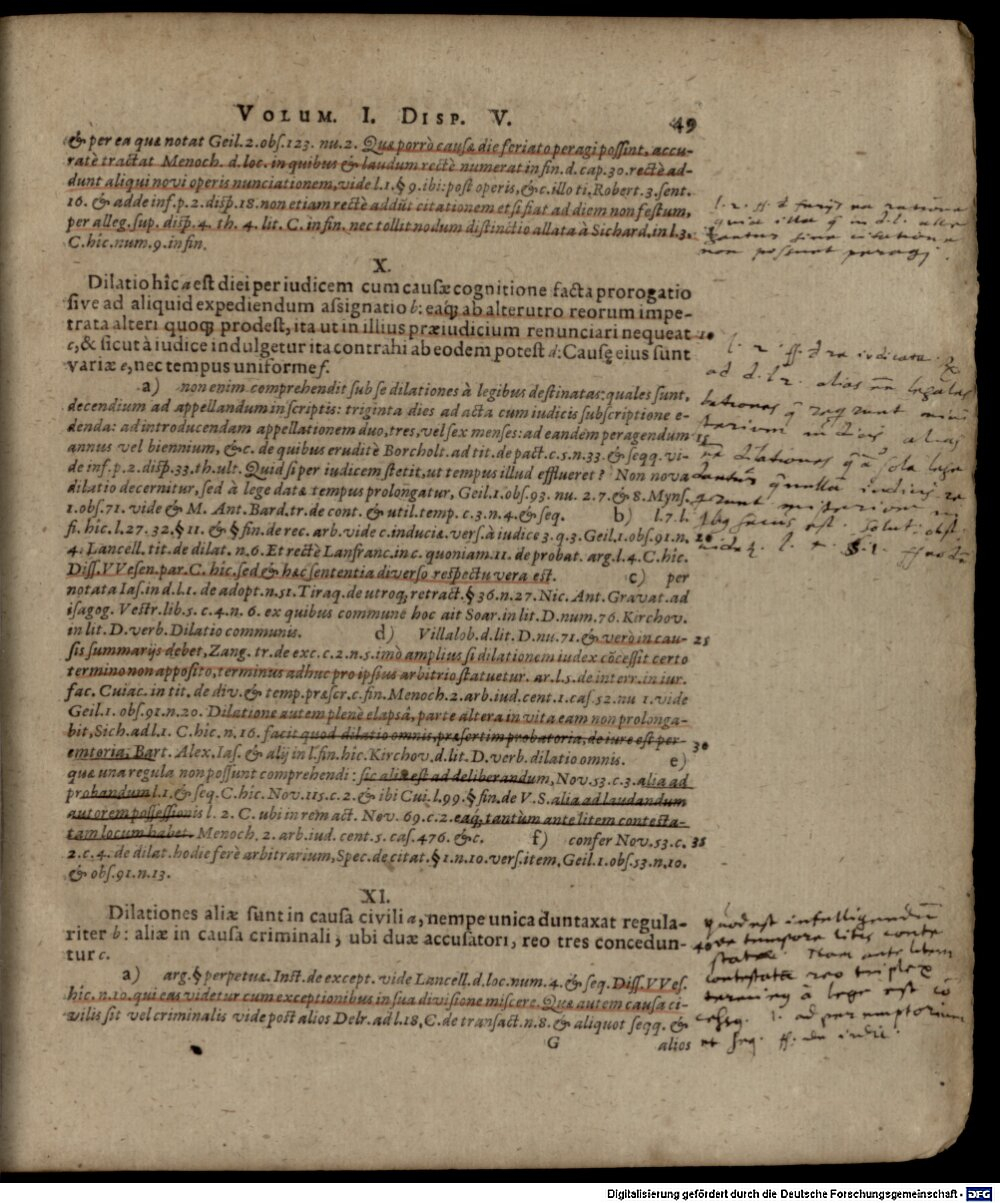 VOLUM. I. DISP. V. 49
& per ea quæ notat Geil. 2. obs. 123. nu. 2. Quæ porrò causæ die feriato peragi possint, accu-
ratè tractat Menoch. d. loc. in quibus & laudum rectè numerat in fin. d. cap. 30. rectè ad-
dunt aliqui novi operis nunciationem, vide l. 1. § 9. ibi: post operis, &c. illo ti. Robert. 3. sent.
16. & adde inf. p. 2. disp. 18. non etiam rectè addūt citationem etsi fiat ad diem non festum,
per alleg. sup. disp. 4. th. 4. lit. C. in fin. nec tollit nodum distinctio allata à Sichard. in l. 3.
C. hic. num. 9. in fin.
X.
Dilatio hîc a est diei per iudicem cum causæ cognitione facta prorogatio
sive ad aliquid expediendum assignatio b: eaq́; ab alterutro reorum impe-
trata alteri quoq; prodest, ita ut in illius præiudicium renunciari nequeat 10
c, & sicut à iudice indulgetur ita contrahi ab eodem potest d: Causę eius sunt
variæ e, nec tempus uniforme f.
a) non enim comprehendit sub se dilationes à legibus destinatas: quales sunt,
decendium ad appellandum in scriptis: triginta dies ad acta cum iudicis subscriptione e-
denda: ad introducendam appellationem duo, tres, vel sex menses: ad eandem peragendum 15
annus vel biennium, &c. de quibus eruditè Borcholt. ad tit. de pact. c. 5. n. 33. & seqq. vi-
de inf. p. 2. disp. 33. th. ult. Quid si per iudicem stetit, ut tempus illud efflueret? Non nova
dilatio decernitur, sed à lege datæ tempus prolongatur, Geil. 1. obs. 93. nu. 2. 7. & 8. Myns.
1. obs. 71. vide & M. Ant. Bard. tr. de cont. & util. temp. c. 3. n. 4. & seq. b) l. 7. l.
fi. hic. l. 27. 32. § 11. & § fin. de rec. arb. vide c. induciæ vers. à iudice 3. q. 3. Geil. 1. obs. 91. n. 20
4. Lancell. tit. de dilat. n. 6. Et rectè Lanfranc. in c. quoniam. 11. de probat. arg. l. 4. C. hic.
Diss. VVesen. par. C. hic. sed & hæc sententia diverso respectu vera est. c) per
notata Ias. in d. l. 1. de adopt. n. 51. Tiraq. de utroq; retract. § 36. n. 27. Nic. Ant. Gravat. ad
isagog. Vestr. lib. 5. c. 4. n. 6. ex quibus commune hoc ait Soar. in lit. D. num. 76. Kirchov.
in lit. D. verb. Dilatio communis. d) Villalob. d. lit. D. nu. 71. & verò in cau- 25
sis summarijs debet, Zang. tr. de exc. c. 2. n. 5. imò amplius si dilationem iudex cōcessit certo
termino non apposito, terminus adhuc pro ipsius arbitrio statuetur. ar. l. 5. de interr. in iur.
fac. Cuiac. in tit. de div. & temp. præscr. c. fin. Menoch. 2. arb. iud. cent. 1. cas. 52. nu 1. vide
Geil. 1. obs. 91. n. 20. Dilatione autem plenè elapsâ, parte altera invita eam non prolonga-
bit, Sich. ad l. 1. C. hic. n. 16. facit quod dilatio omnis, præsertim probatoria, de iure est per- 30
emtoria; Bart. Alex. Ias. & alij in l. fin. hic. Kirchov. d. lit. D. verb. dilatio omnis. e)
quæ una regula non possunt comprehendi: sic alia est ad deliberandum, Nov. 53. c. 3. alia ad
probandum l. 1. & seq. C. hic. Nov. 115. c. 2. & ibi Cui. l. 99. § fin. de V. S. alia ad laudandum
autorem possessionis l. 2. C. ubi in rem act. Nov. 69. c. 2. eaq́; tantùm ante litem contesta-
tam locum habet. Menoch. 2. arb. iud. cent. 5. cas. 476. &c. f) confer Nov. 53. c. 35
2. c. 4. de dilat. hodie ferè arbitrarium, Spec. de citat. § 1. n. 10. vers. item, Geil. 1. obs. 53. n. 10.
& obs. 91. n. 13.
XI.
Dilationes aliæ sunt in causa civili a, nempe unica duntaxat regula-
riter b: aliæ in causa criminali, ubi duæ accusatori, reo tres concedun- 40
tur c.
a) arg. § perpetuæ. Inst. de except. vide Lancell. d. loc. num. 4. & seq. Diss. VVes.
hic. n. 10. qui eas videtur cum exceptionibus in sua divisione miscere. Quæ autem causa ci-
vilis sit vel criminalis vide post alios Delr. ad l. 18, C. de transact. n. 8. & aliquot seqq. &
G alios
non possunt peragj.
l. 2. ff. d re iudicata
ad d. l. 2. alias
quod est intelligendū
de tempore litis conte
statæ. Nam ante litem
contestatā reo triplex
terminq à lege est cō
l. ad peremptorium
et seq. ff. de iudi
Digitalisierung gefördert durch die Deutsche Forschungsgemeinschaft - DFG